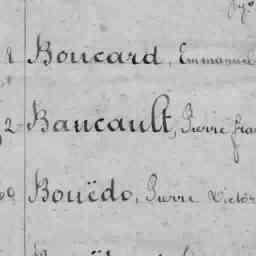 Boucard, Emmanuel
2 Bancault, Pierre fra
Bouëdo, Pierre Victor